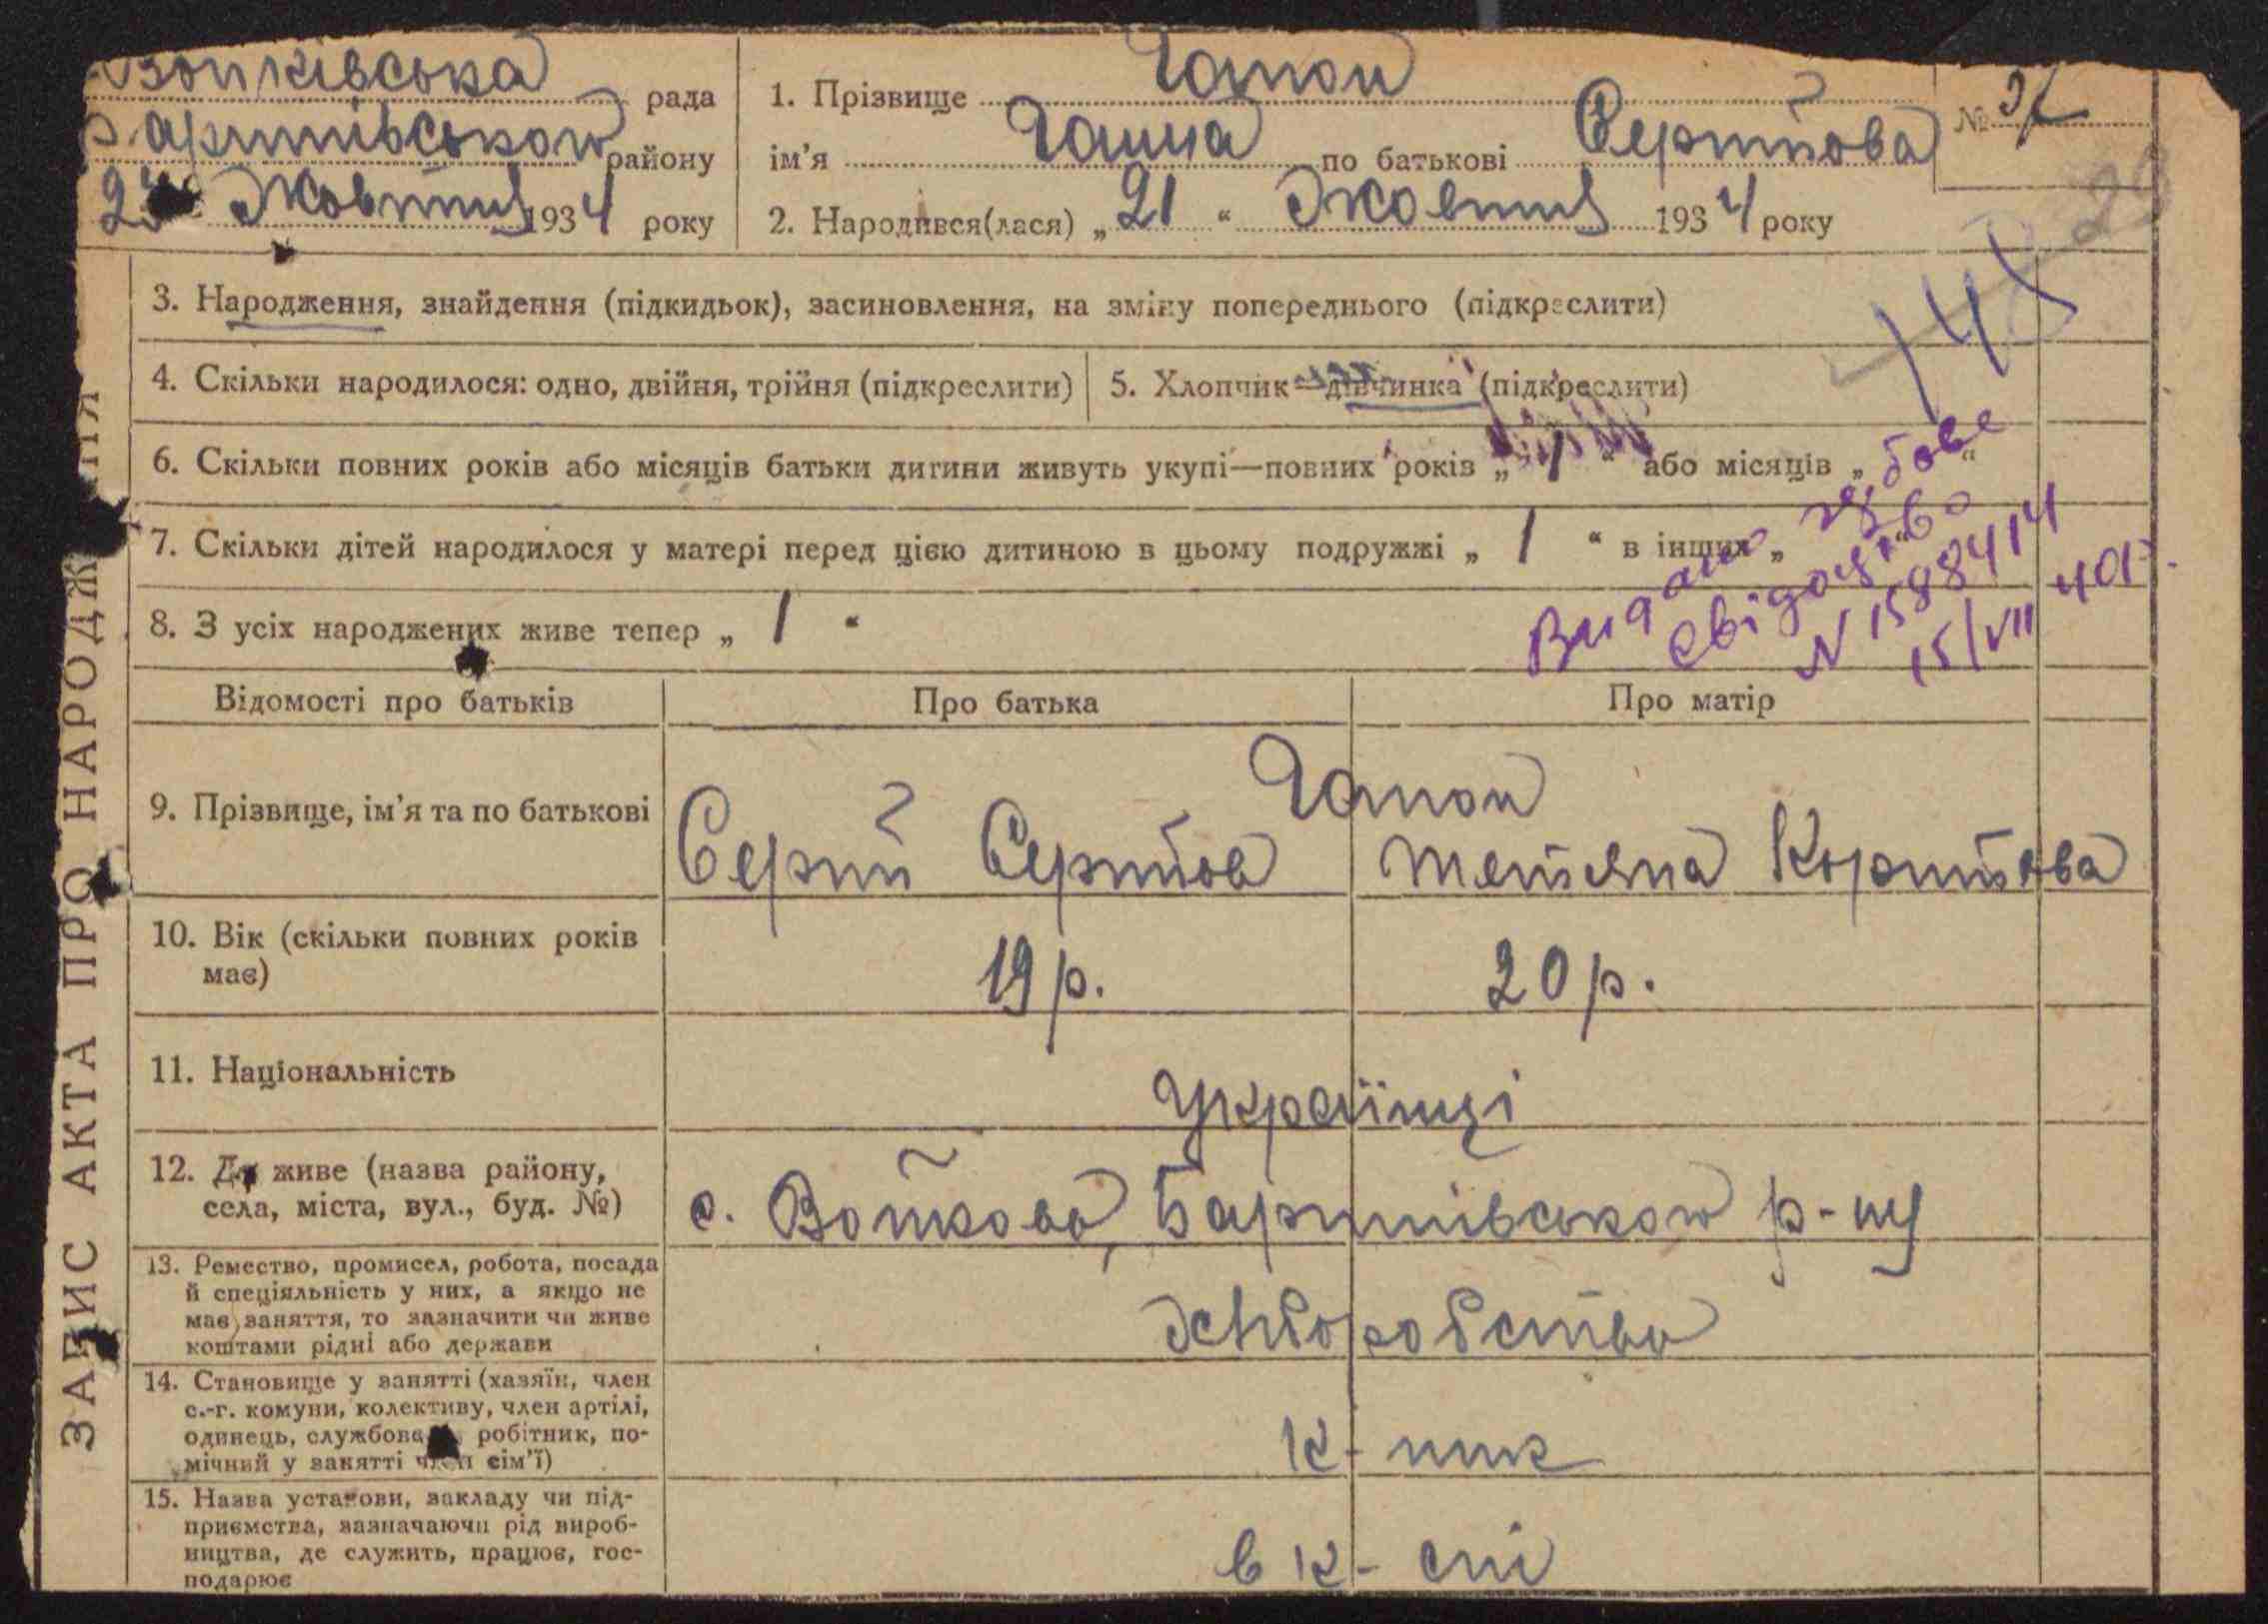 Войківська рада
Баришівського району
Жовтня 1934 року
1. Прізвище Гапон
ім'я Ганна по батькові Сергіївна
№ 37
2. Народився(лася) „ 21 “ Жовтня 1934 року
29
3. Народження, знайдення (підкидьок), засиновлення, на зміну попереднього (підкреслити)
4. Скільки народилося: одно, двійня, трійня (підкреслити)
5. Хлопчик—дівчинка (підкреслити)
6. Скільки повних років або місяців батьки дитини живуть укупі—повних років „ 1 “ або місяців „ “
7. Скільки дітей народилося у матері перед цією дитиною в цьому подружжі „ 1 “ в інших „
8. З усіх народжених живе тепер „ 1 “
Видано
свідоцтво
N 1588414
15/VII 40р.
Відомості про батьків
Про батька
Про матір
9. Прізвище, ім'я та по батькові
Гапон
Сергій Сергійов
Тетяна
10. Вік (скільки повних років має)
19 р.
20 р.
11. Національність
Українці
12. Де живе (назва району,
села, міста, вул., буд. №)
с. Войково, Баришівського р-ну
13. Ремество, промисел, робота, посада
й спеціяльність у них, а якщо не
має заняття, то зазначити чи живе
коштами рідні або держави
хліборобство
14. Становище у занятті (хазяїн, член
с.-г. комуни, колективу, член артілі,
одинець, службовець робітник, по-
мічний у занятті член сім'ї)
к-ник
15. Назва установи, закладу чи під-
приємства, зазначаючи рід вироб-
ництва, де служить, працює, гос-
подарює
в к-спі
ЗАПИС АКТА ПРО НАРОДЖЕННЯ